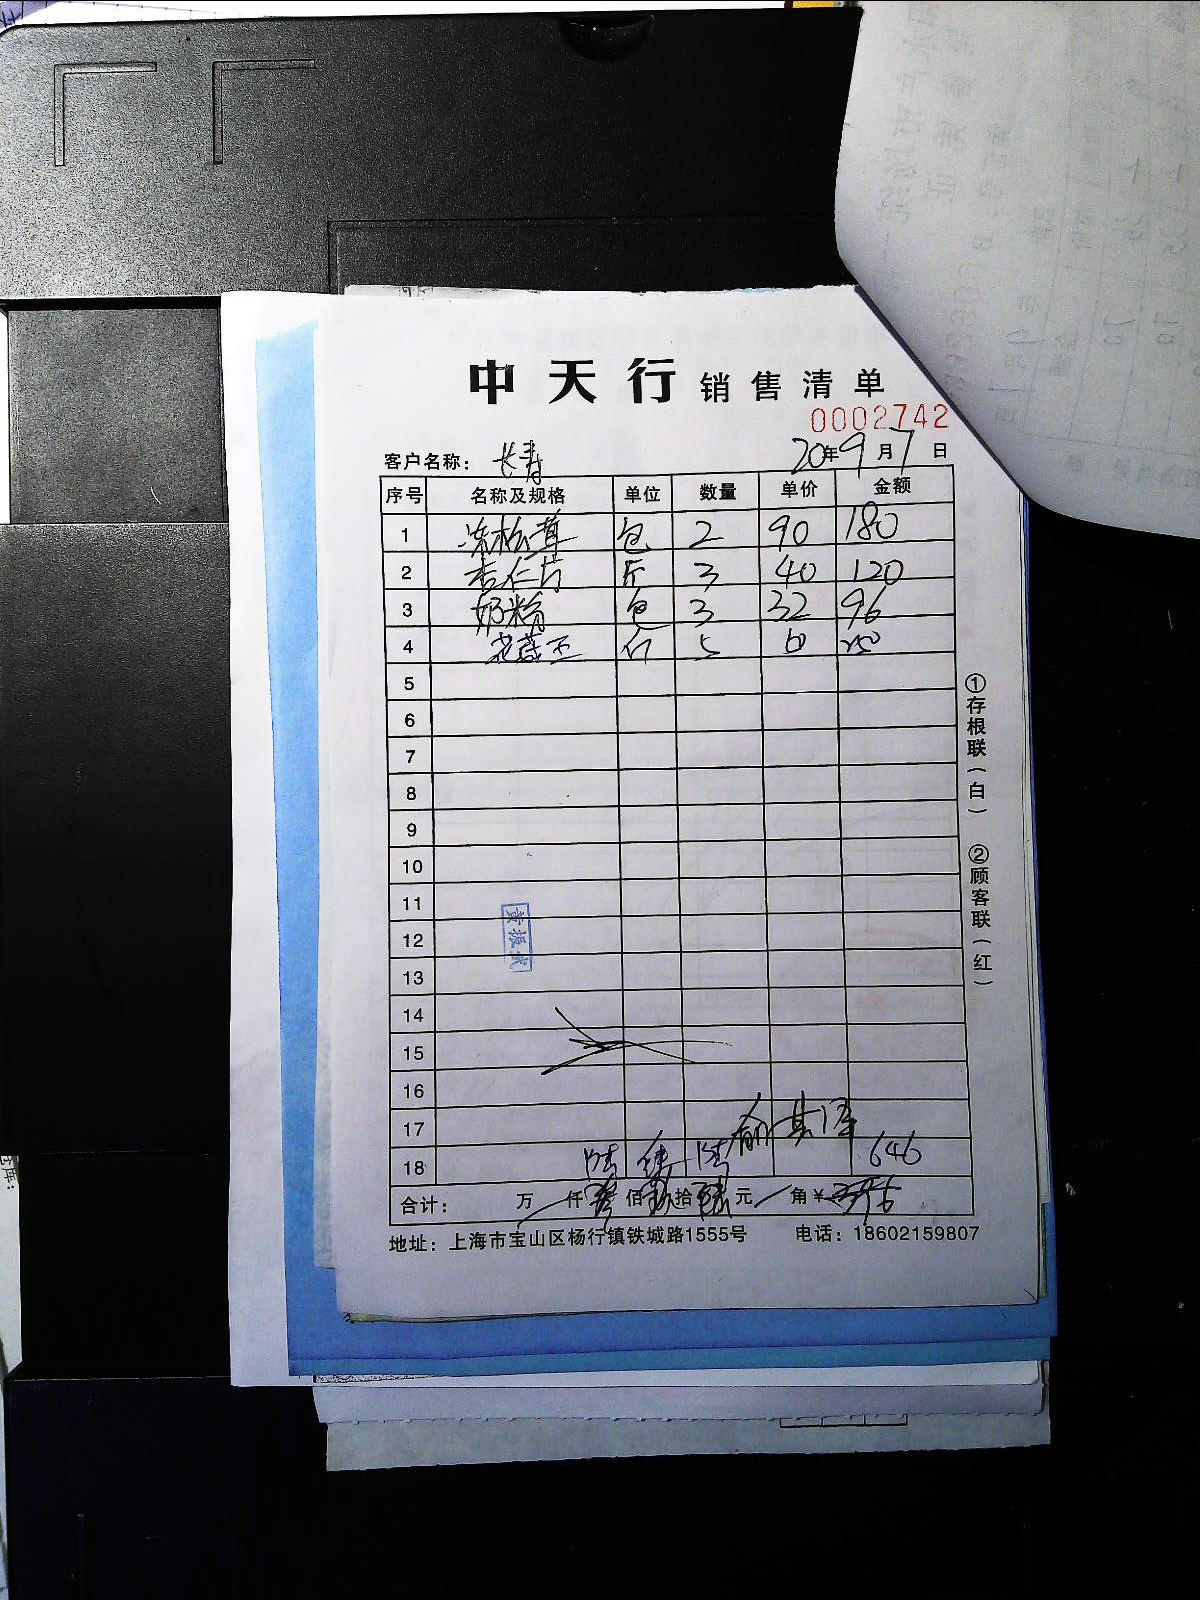 中天行 销售清单
0002742
客户名称： 长寿 20年9月7日
序号 名称及规格 单位 数量 单价 金额
1 冻松茸 包 2 90 180
2 杏仁片 斤 3 40 120
3 奶粉 包 3 32 96
4 5
5
6
7
8
9
10
11
12
13
14
15
16
17
18 陆 肆 陆 646
合计： 万 仟 佰 拾 元 角 ¥
地址：上海市宝山区杨行镇铁城路1555号 电话：18602159807
①存根联（白） ②顾客联（红）